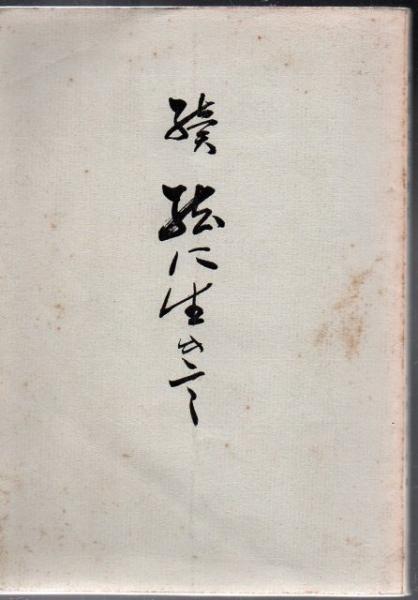 續 絃に生きて